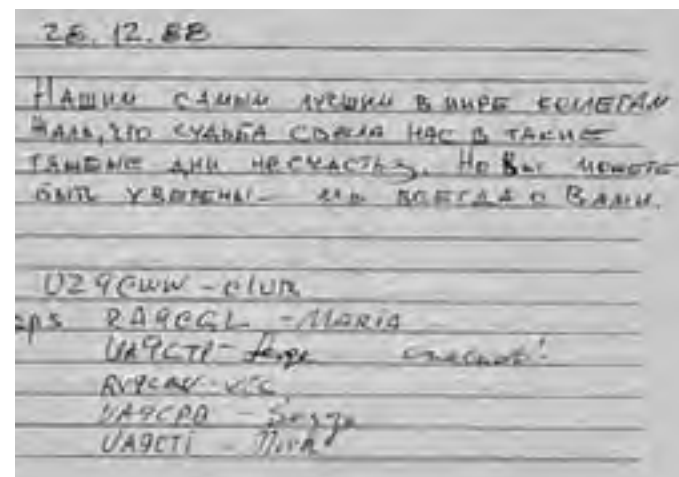 28.12.88
Нашим самым лучшим в мире колегам
Жаль, что судьба свела нас в такие
тяжелые дни несчастья. Но Вы можете
быть уверены - мы всегда с Вами.
UZ9CWW - club
ops RA9CGL - MARIA
UA9CTP - Serge спасибо!
- VIC
UA9CPA - Serge
UA9CTI - Nick